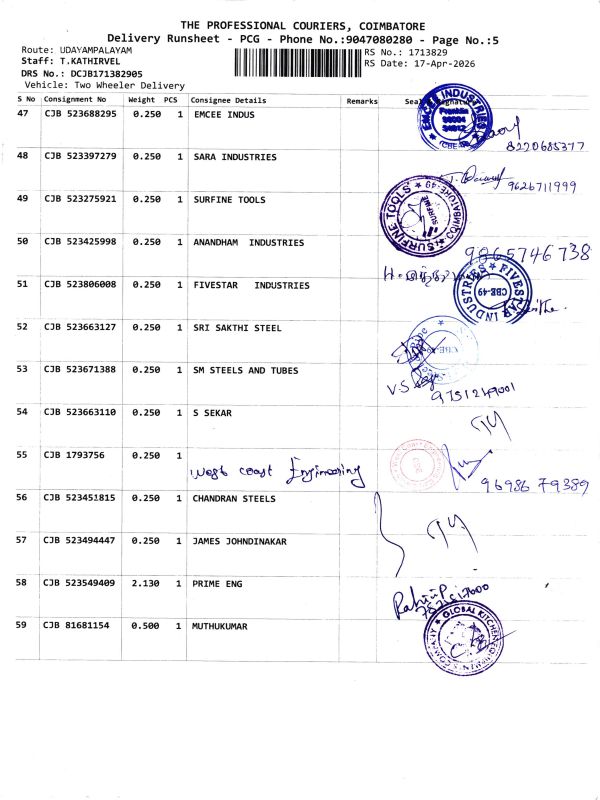 THE PROFESSIONAL COURIERS, COIMBATORE
Delivery Runsheet - PCG - Phone No.:9047080280 - Page No.:5
Route: UDAYAMPALAYAM
RS No.: 1713829
Staff: T.KATHIRVEL
RS Date: 17-Apr-2026
DRS No.: DCJB171382905
Vehicle: Two Wheeler Delivery
S No Consignment No Weight PCS Consignee Details Remarks
47 CJB 523688295 0.250 1 EMCEE INDUS
EMCEE INDUSTRIES
8220685377
48 CJB 523397279 0.250 1 SARA INDUSTRIES
9626711999
49 CJB 523275921 0.250 1 SURFINE TOOLS
SURFINE TOOLS COIMBATORE-49
SURFINE
50 CJB 523425998 0.250 1 ANANDHAM INDUSTRIES
9865746738
51 CJB 523806008 0.250 1 FIVESTAR INDUSTRIES
FIVESTAR INDUSTRIES
CBE-49
52 CJB 523663127 0.250 1 SRI SAKTHI STEEL
53 CJB 523671388 0.250 1 SM STEELS AND TUBES
9751249001
54 CJB 523663110 0.250 1 S SEKAR
55 CJB 1793756 0.250 1
West coast Engineering
96986 79389
56 CJB 523451815 0.250 1 CHANDRAN STEELS
57 CJB 523494447 0.250 1 JAMES JOHNDINAKAR
58 CJB 523549409 2.130 1 PRIME ENG
59 CJB 81681154 0.500 1 MUTHUKUMAR
GLOBAL KITCHEN
COMPANY